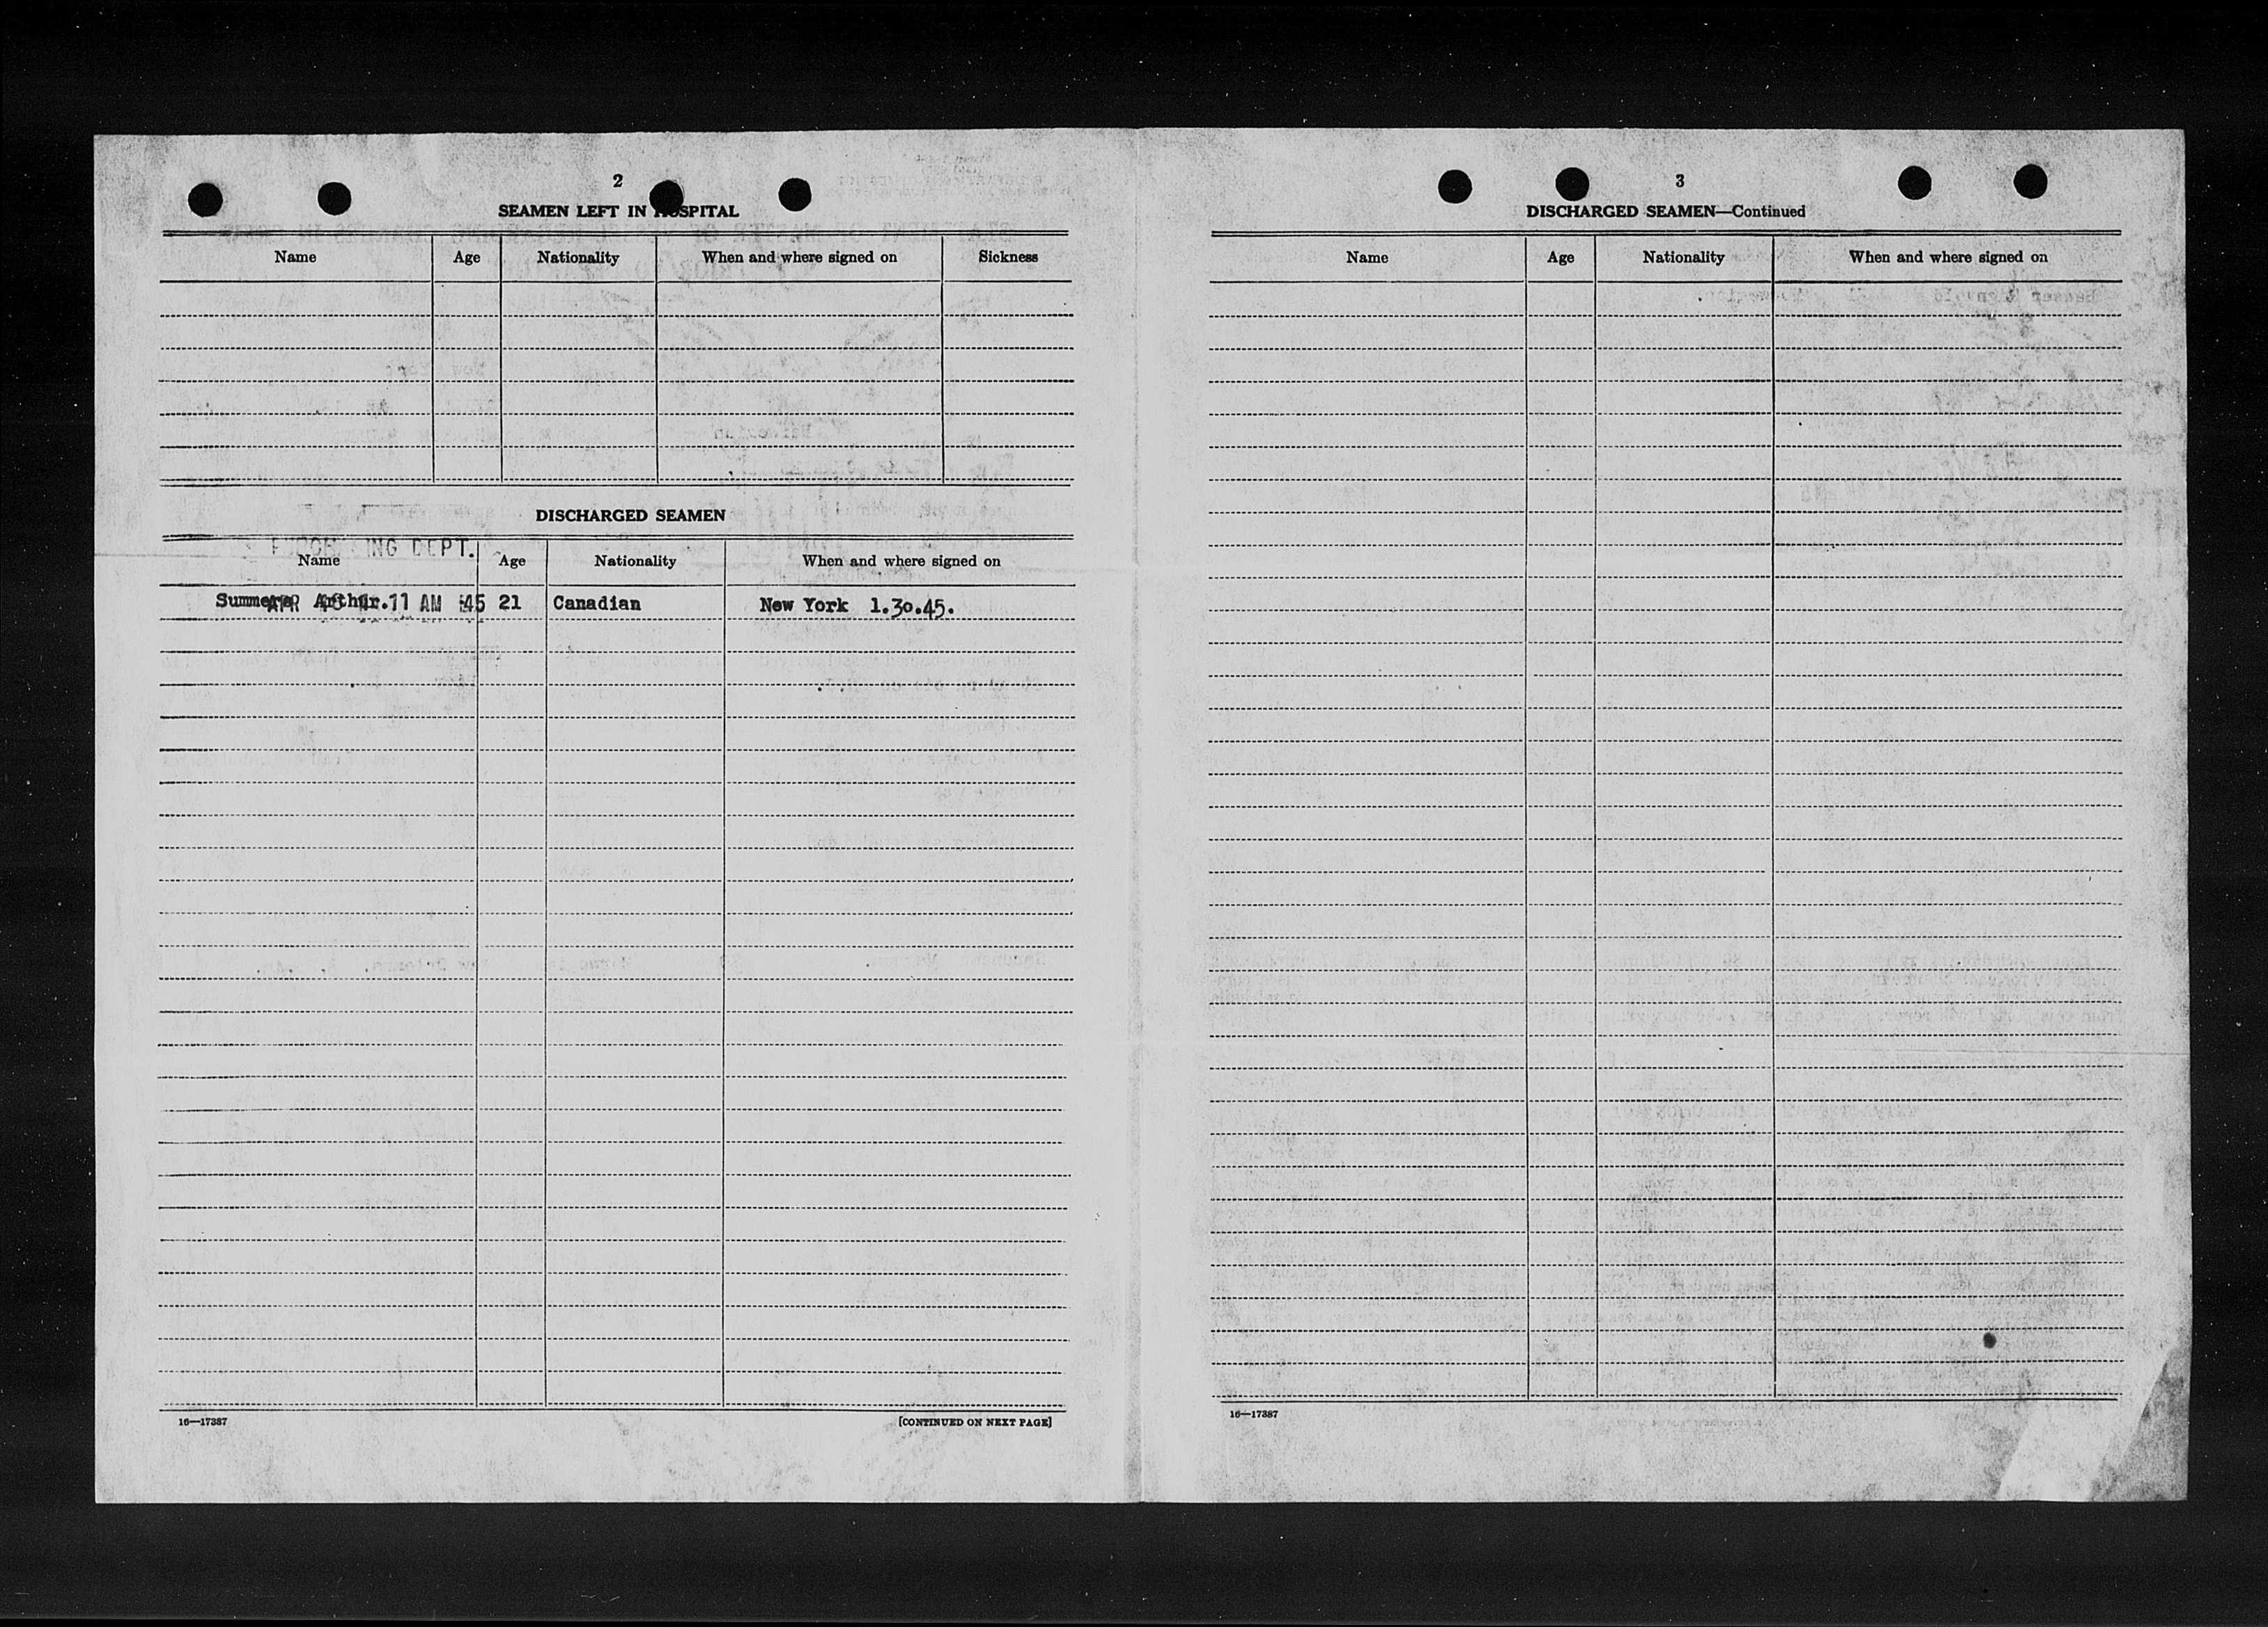 2
SEAMEN LEFT IN HOSPITAL
Name Age Nationality When and where signed on Sickness
DISCHARGED SEAMEN
ING DEPT.
Name Age Nationality When and where signed on
Summers Arthur. 21 Canadian New York 1.30.45.
APR 11 AM '45
16—17387 [CONTINUED ON NEXT PAGE]
3
DISCHARGED SEAMEN—Continued
Name Age Nationality When and where signed on
16—17387